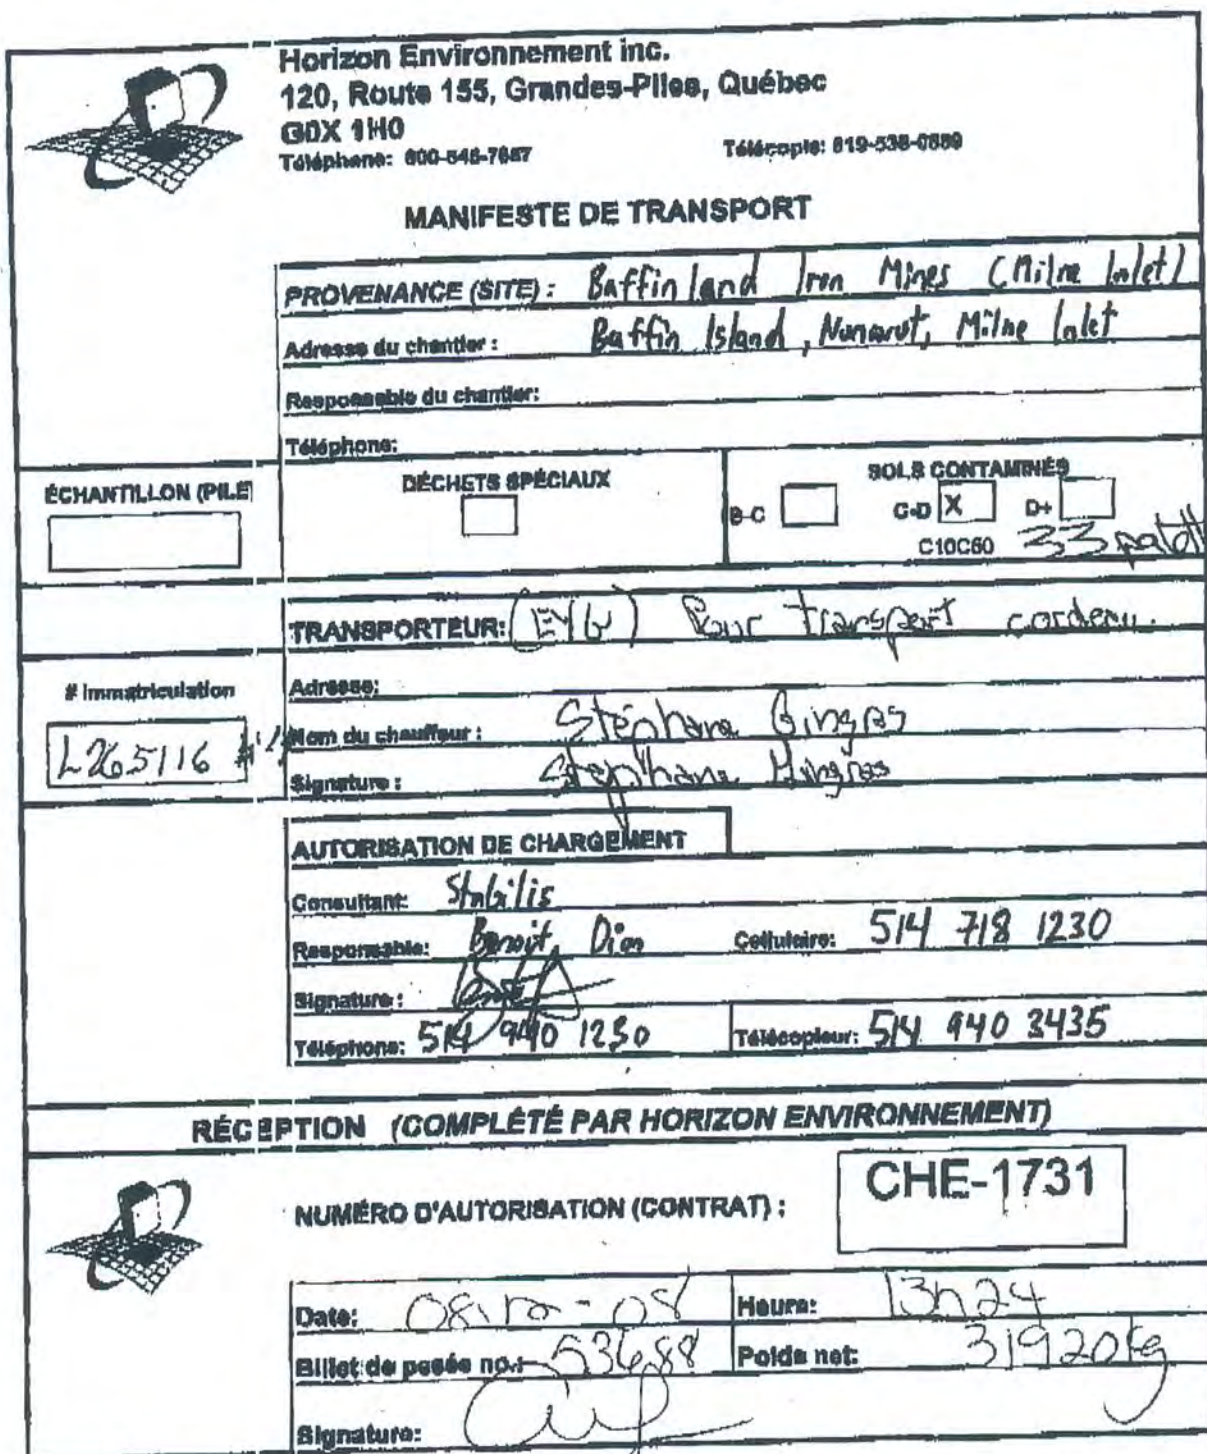 Horizon Environnement inc.
120, Route 155, Grandes-Piles, Québec
G0X 1H0
Téléphone: 800-545-7657 Télécopie: 819-538-0889
MANIFESTE DE TRANSPORT
PROVENANCE (SITE) : Baffin land Iron Mines (Milne Inlet)
Adresse du chantier : Baffin Island, Nunavut, Milne Inlet
Responsable du chantier:
Téléphone:
ÉCHANTILLON (PILE)
DÉCHETS SPÉCIAUX
SOLS CONTAMINÉS
B-C C-D X D+
C10C50 33
TRANSPORTEUR: Pour transport
# immatriculation
L265116
Adresse:
Nom du chauffeur : Stéphane Gingras
Signature : Stephane Gingras
AUTORISATION DE CHARGEMENT
Consultant: Stabilis
Responsable: Benoit Dion Cellulaire: 514 718 1230
Signature :
Téléphone: 514 940 1230 Télécopieur: 514 940 3435
RÉCEPTION (COMPLÉTÉ PAR HORIZON ENVIRONNEMENT)
NUMÉRO D'AUTORISATION (CONTRAT) : CHE-1731
Date: 08-10-08 Heure: 13h24
Billet de pesée no.: 53688 Poids net: 31920kg
Signature: